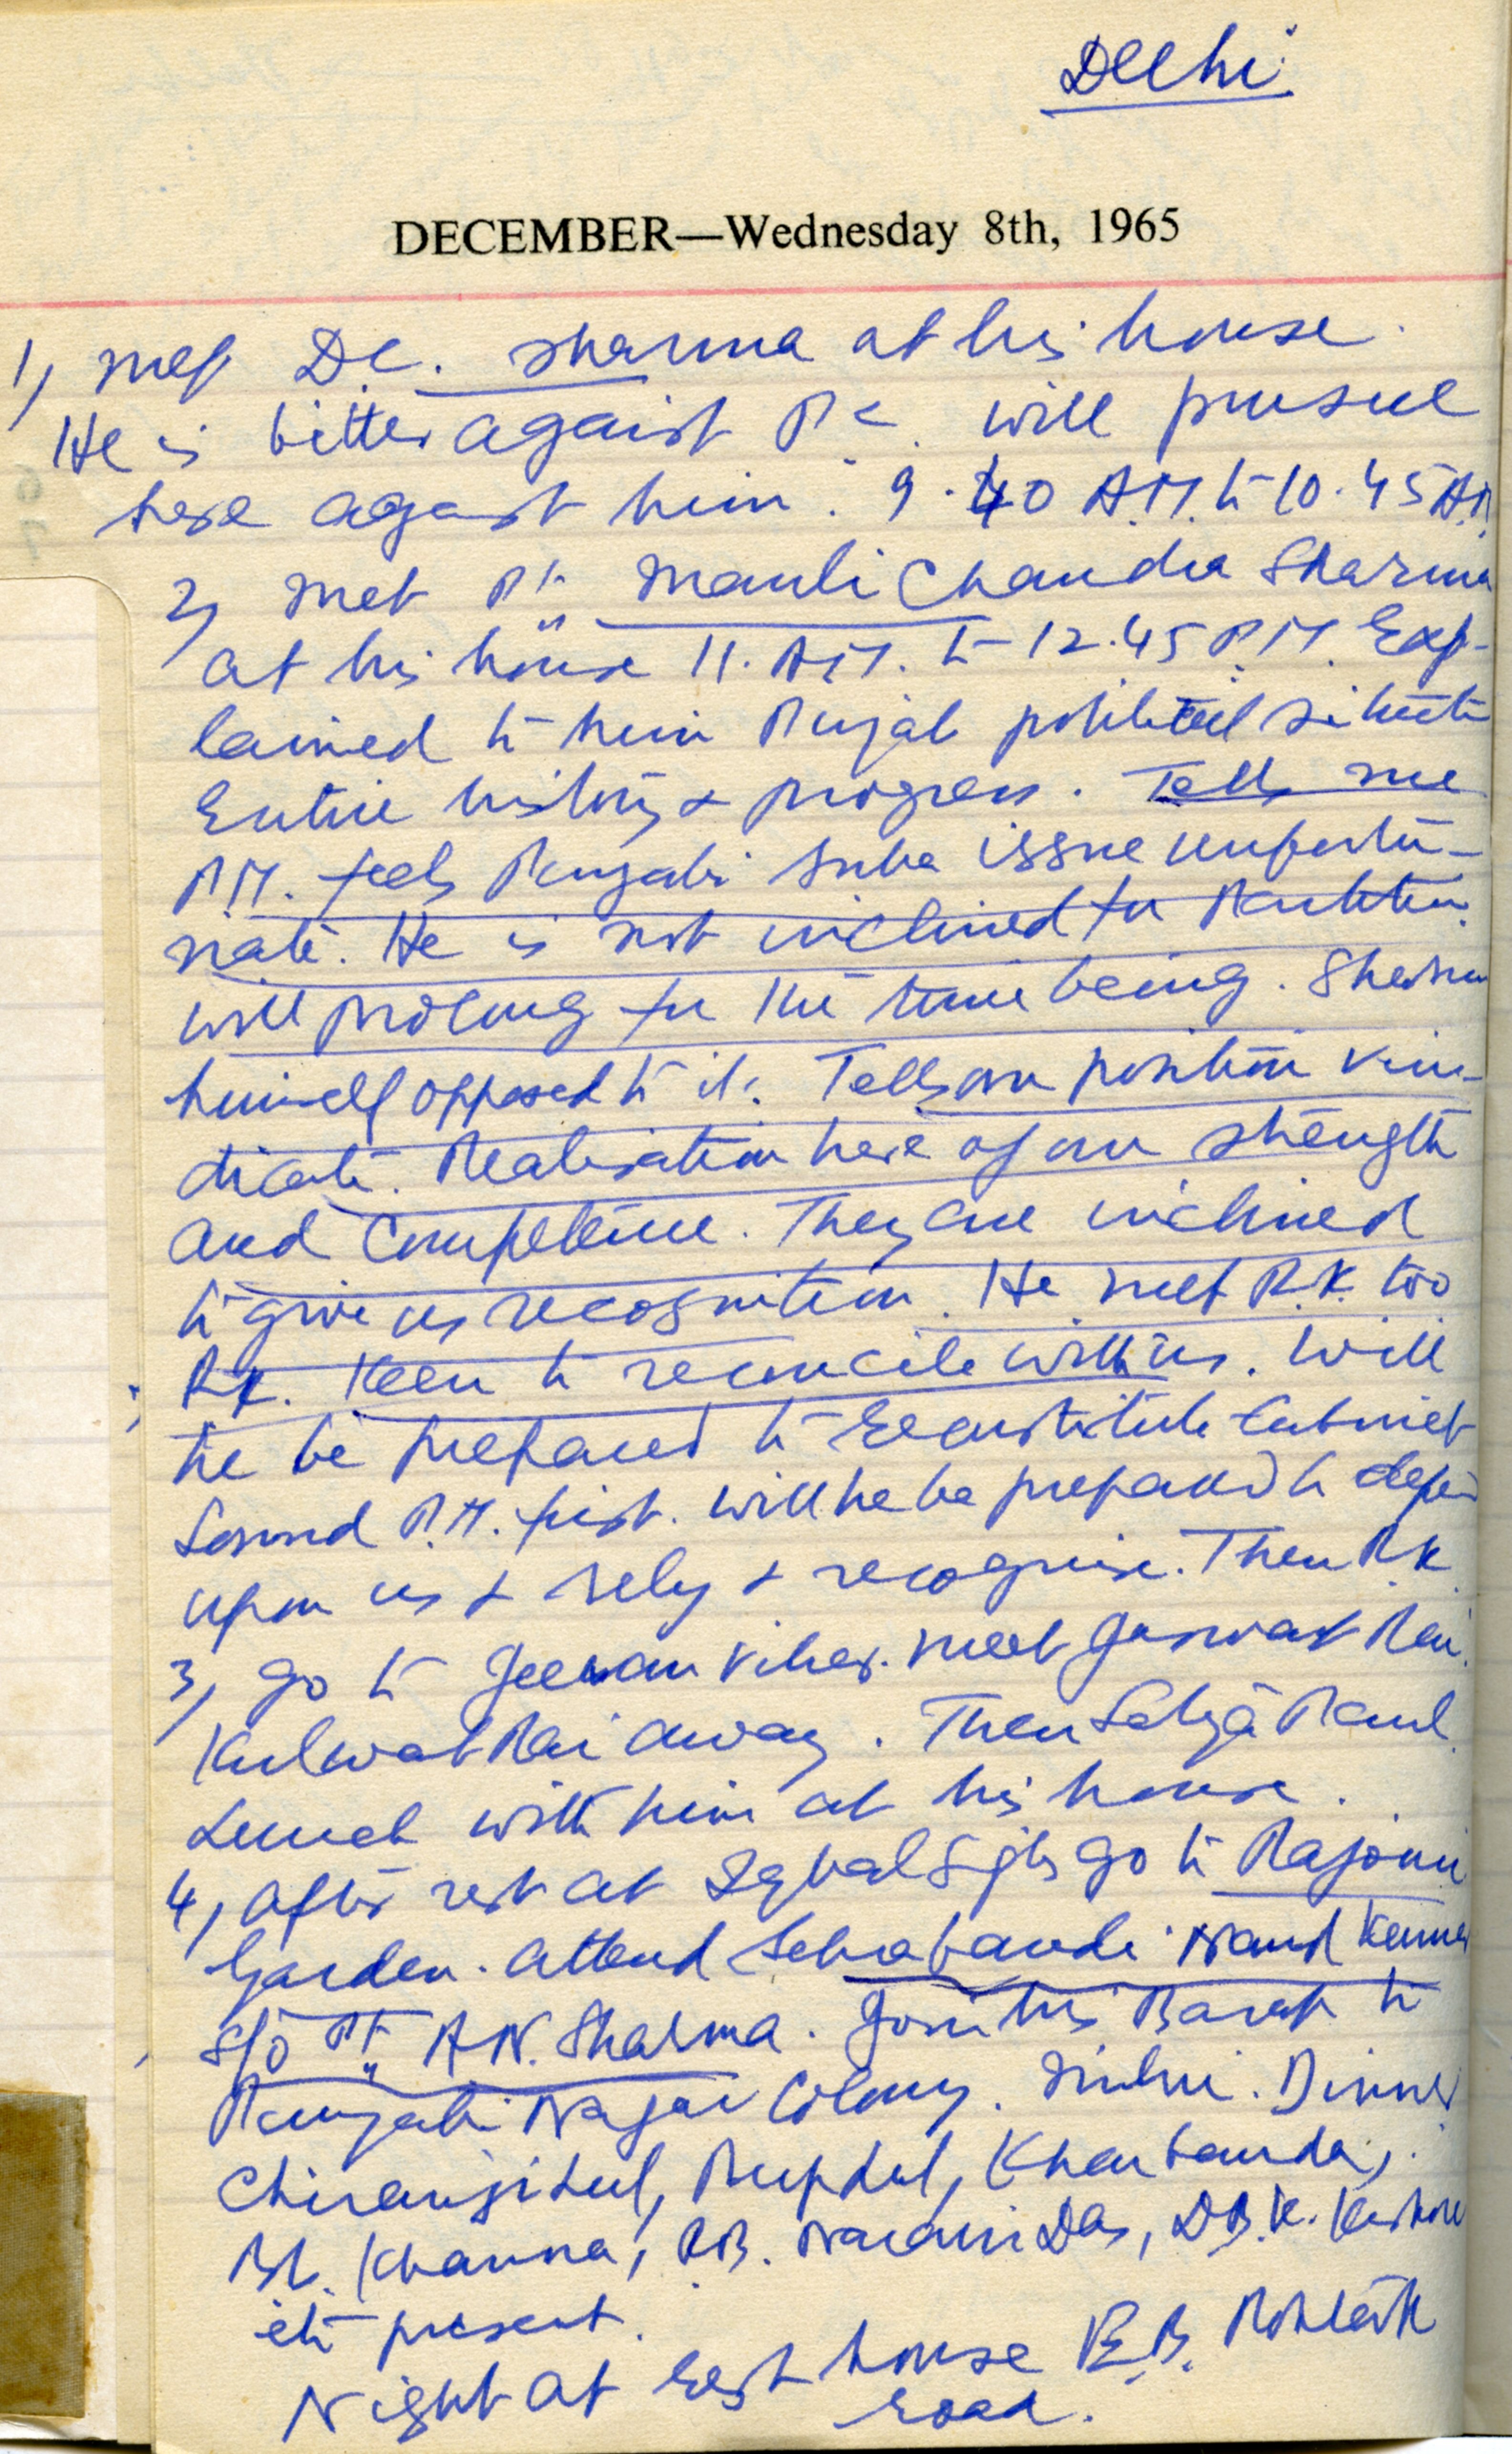 Delhi
DECEMBER—Wednesday 8th, 1965
1, Met D.C. Sharma at his house.
He is bitter against will pursue
here against him. 9.40 A.M. to 10.45 A.M.
2, Met Pt. Mauli Chandra Sharma
at his house 11. A.M. to 12.45 P.M. Exp-
lained to him Punjab political situation
Entire history & progress. Tells me
P.M. feels Punjabi Suba issue unfortu-
nate. He is not inclined for Partition.
will prolong for the time being. Sharma
himself opposed to it. Tells our position vin-
dicate. Realisation here of our strength
and competence. They are inclined
to give us recognition. He met R.K. too
R.K. keen to reconcile with us. Will
he be prepared to reconstitute Cabinet
Sound P.M. first. Will he be prepared to depend
upon us & rely & recognise. Then R.K.
3, go to Jeewan Vihar. Meet Jaswant Rai.
Kulwant Rai away. Then Satya Paul.
Lunch with him at his house.
4, After rest at Iqbal Singh go to Rajouri
Garden. Attend Sehrabandi Nand Kumar
s/o Pt. A.N. Sharma. Join his Barat to
Punjabi Nagar Colony. Milni. Dinner
Chiranjilal, Kharbanda,
Khanna, R.B. Narain Das, D.B.K. Kishore
etc present.
Night at Rest house B.B. Rohtak
Road.